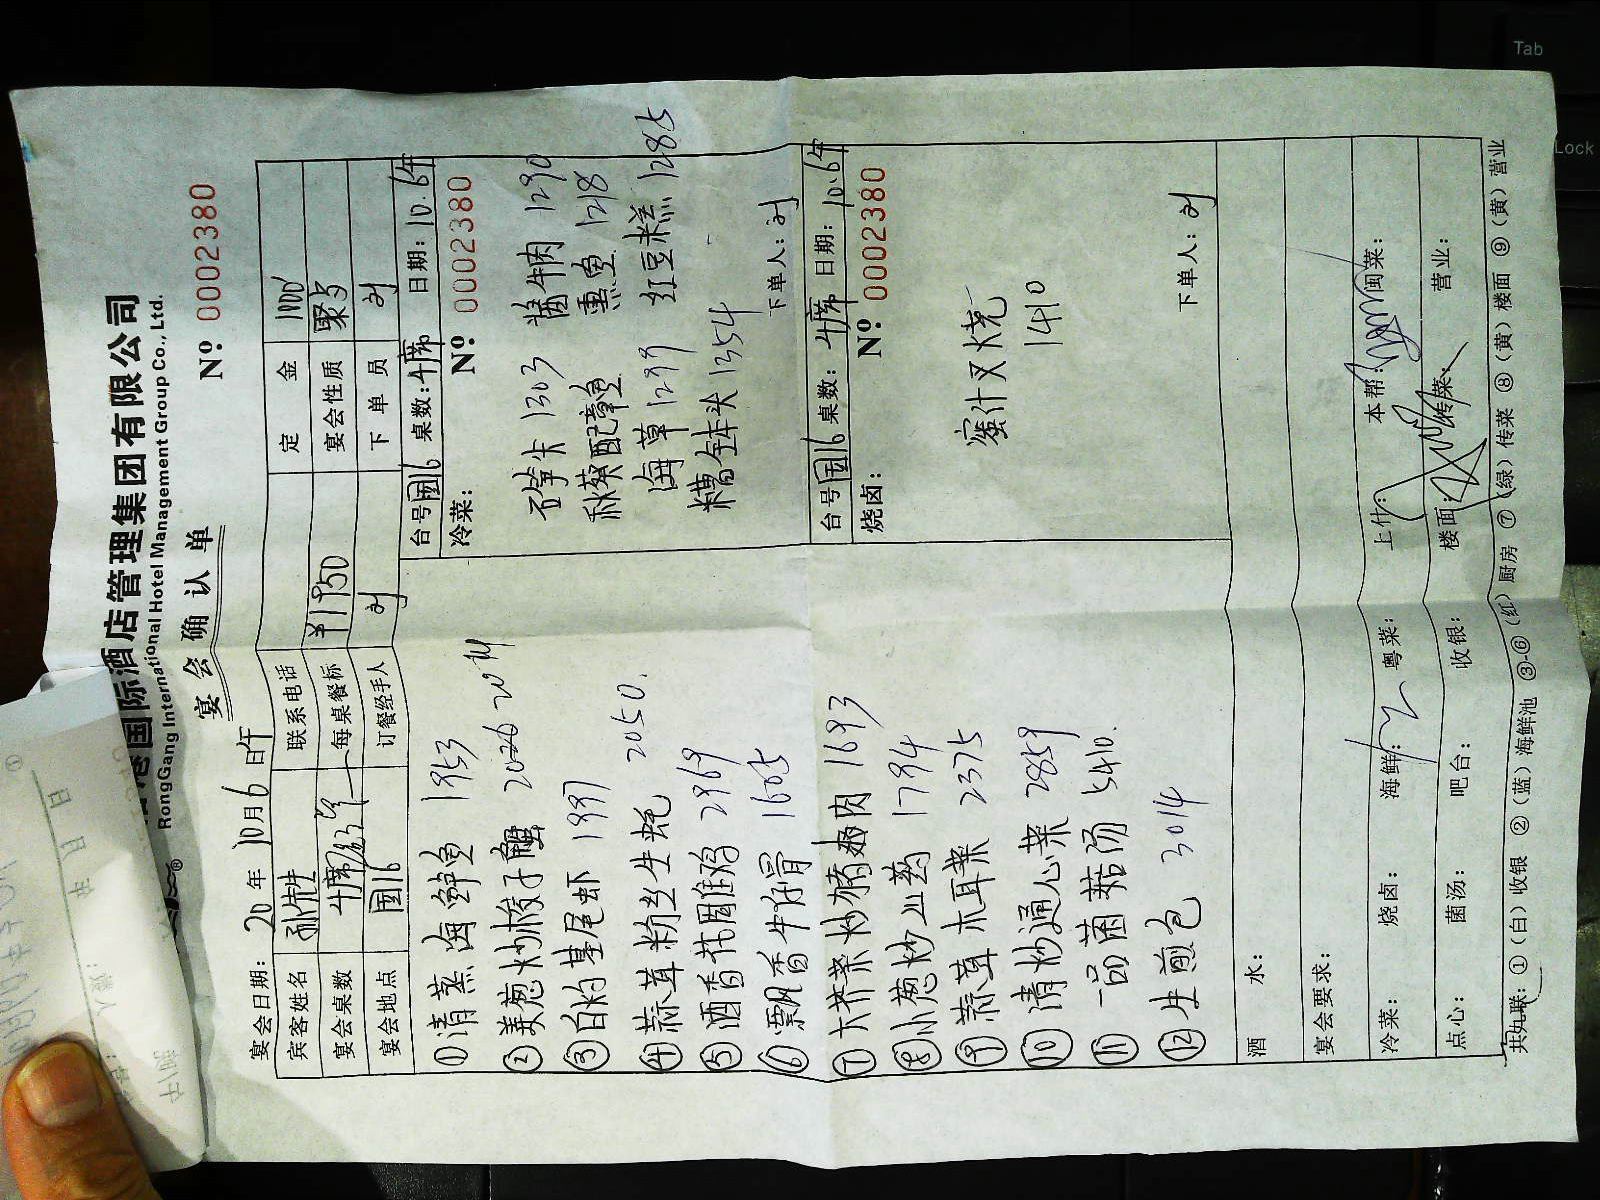 国际酒店管理集团有限公司
RongGang International Hotel Management Group Co., Ltd.
宴会确认单
Nº 0002380
宴会日期: 20 年 10月6日午
宾客姓名 孙先生 联系电话 定金 1000
宴会桌数 4席 每桌餐标 ¥1950 宴会性质
宴会地点 国16 订餐经手人 刘 下单员 刘
台号 国16 桌数: 4席 日期: 10.6午
冷菜: Nº 0002380
石笋尖 1303 酱牛肉 1290
秋葵配章鱼 熏鱼 1218
海草 1299 红豆糕 1285
糟钵头 1354
下单人: 刘
台号 国16 桌数: 4席 日期: 10.6午
烧卤: Nº 0002380
蜜汁叉烧
1410
下单人: 刘
① 清蒸海鲈鱼 1953
② 美葱炒梭子蟹
③ 白灼基尾虾 1997
④ 蒜茸粉丝生蚝 2050.
⑤ 酒香花雕鸡 2969
⑥ 飘香牛仔骨 1605
⑦ 大芥菜炒猪颈肉 1693
⑧ 小葱炒山药 1794
⑨ 蒜茸木耳菜 2375
⑩ 清炒通心菜 2859
⑪ 一品菌菇汤 5410.
⑫ 生煎包 3014
酒水:
宴会要求:
冷菜: 烧卤: 海鲜: 粤菜: 上什: 本帮: 闽菜:
点心: 菌汤: 吧台: 收银: 楼面: 传菜: 营业:
共九联: ①(白)收银 ②(蓝)海鲜池 ③-⑥(红)厨房 ⑦(绿)传菜 ⑧(黄)楼面 ⑨(黄)营业
Tab
Lock